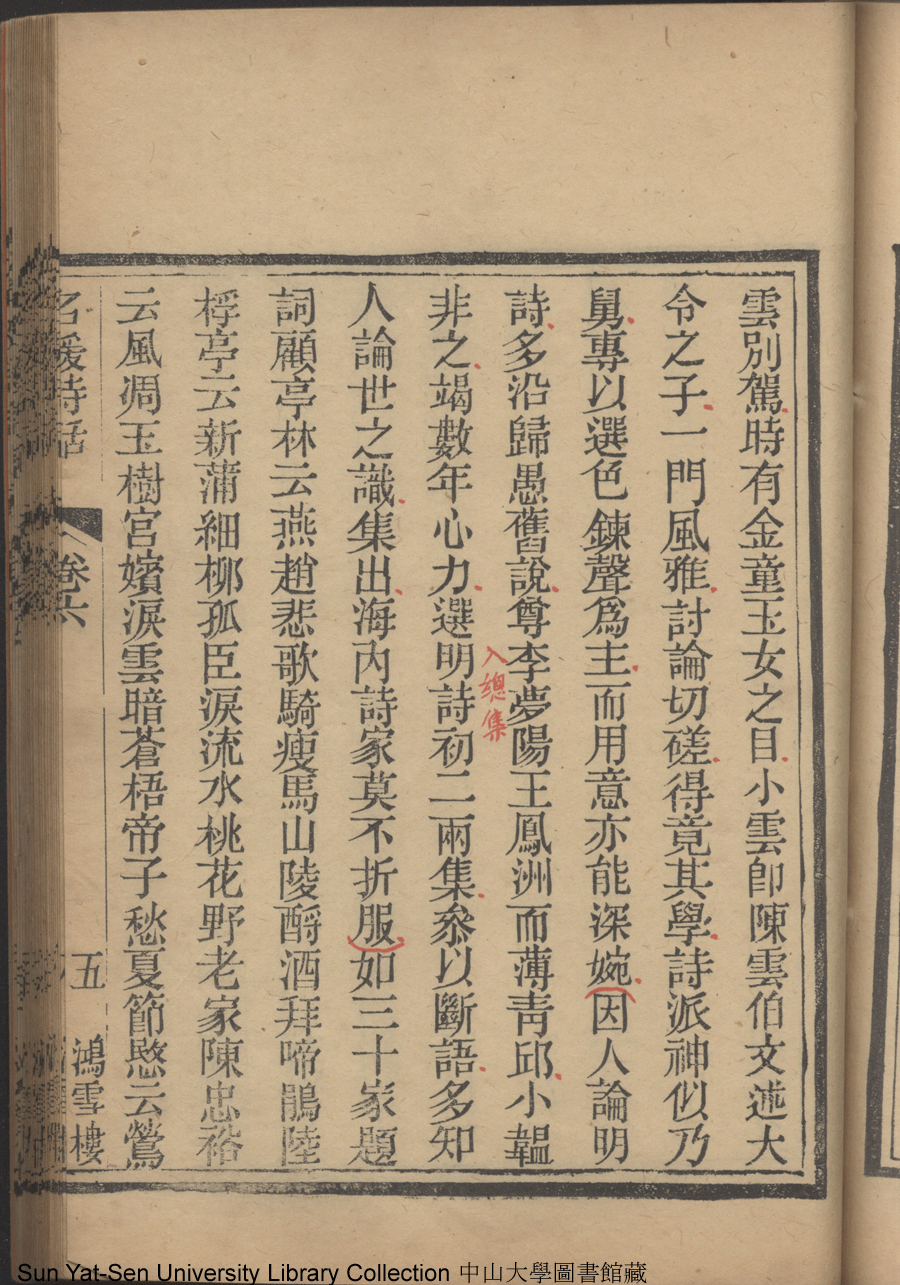 雲別駕時有金童玉女之目小雲卽陳雲伯文述大
令之子一門風雅討論切磋得竟其學詩派神似乃
舅專以選色鍊聲爲主而用意亦能深婉因人論明
詩多沿歸愚舊說尊李夢陽王鳳洲而薄靑邱小韞
入總集
非之竭數年心力選明詩初二兩集叅以斷語多知
人論世之識集出海內詩家莫不折服如三十家題
詞顧亭林云燕趙悲歌騎瘦馬山陵酹酒拜啼鵑陸
桴亭云新蒲細柳孤臣淚流水桃花野老家陳忠裕
云風凋玉樹宮嬪淚雲暗蒼梧帝子愁夏節愍云鶯
名媛詩話 卷六 五 鴻雪樓
Sun Yat-Sen University Library Collection 中山大學圖書館藏